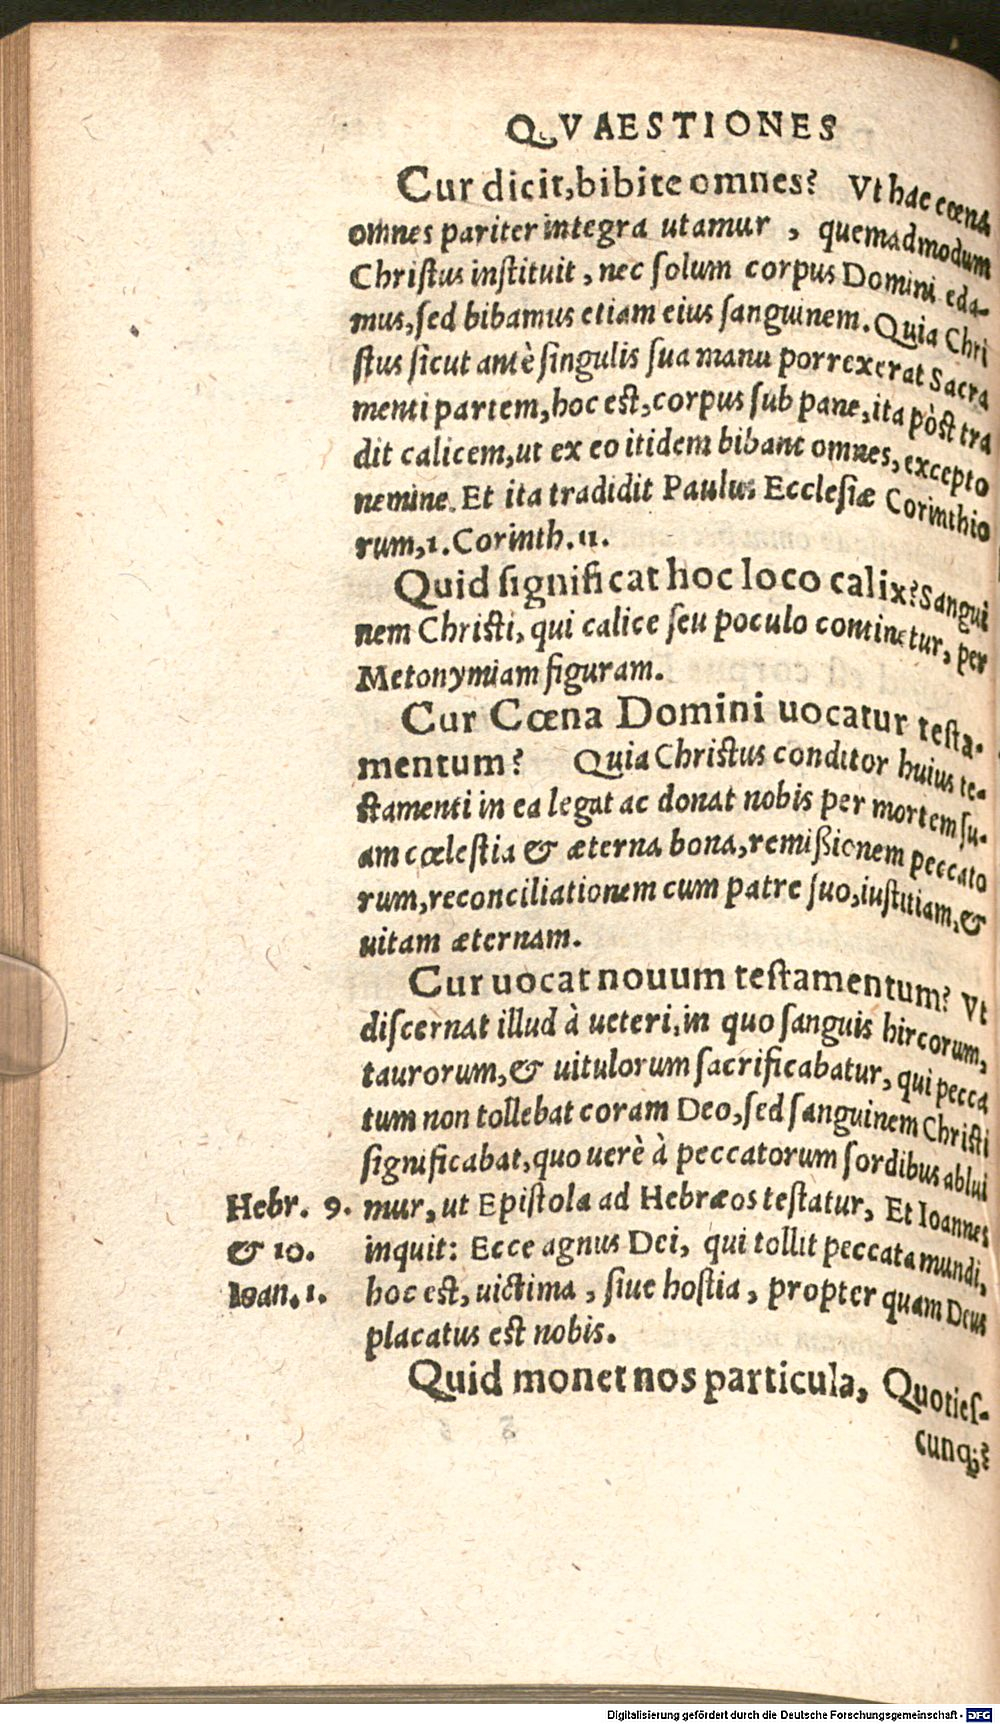 QVAESTIONES
Cur dicit, bibite omnes? Vt hac cœna
omnes pariter integra utamur, quemadmodum
Chriſtus inſtituit, nec ſolum corpus Domini eda-
mus, ſed bibamus etiam eius ſanguinem. Quia Chri
ſtus ſicut antè ſingulis ſua manu porrexerat Sacra
menti partem, hoc eſt, corpus ſub pane, ita pòſt tra
dit calicem, ut ex eo itidem bibant omnes, excepto
nemine. Et ita tradidit Paulus Eccleſiæ Corinthio
rum, 1. Corinth. 11.
Quid ſignificat hoc loco calix? Sangui
nem Chriſti, qui calice ſeu poculo continetur, per
Metonymiam figuram.
Cur Cœna Domini uocatur teſta-
mentum? Quia Chriſtus conditor huius te-
ſtamenti in ea legat ac donat nobis per mortem ſu-
am cœleſtia & æterna bona, remiſſionem peccato
rum, reconciliationem cum patre ſuo, iuſtitiam, &
uitam æternam.
Cur uocat nouum teſtamentum? Vt
diſcernat illud à ueteri, in quo ſanguis hircorum,
taurorum, & uitulorum ſacrificabatur, qui pecca
tum non tollebat coram Deo, ſed ſanguinem Chriſti
ſignificabat, quo uerè à peccatorum ſordibus ablui
Hebr. 9. mur, ut Epiſtola ad Hebræos teſtatur, Et Ioannes
& 10. inquit: Ecce agnus Dei, qui tollit peccata mundi,
Ioan. 1. hoc eſt, uictima, ſiue hoſtia, propter quam Deus
placatus est nobis.
Quid monet nos particula, Quotieſ-
cunq;?
Digitalisierung gefördert durch die Deutsche Forschungsgemeinschaft - DFG